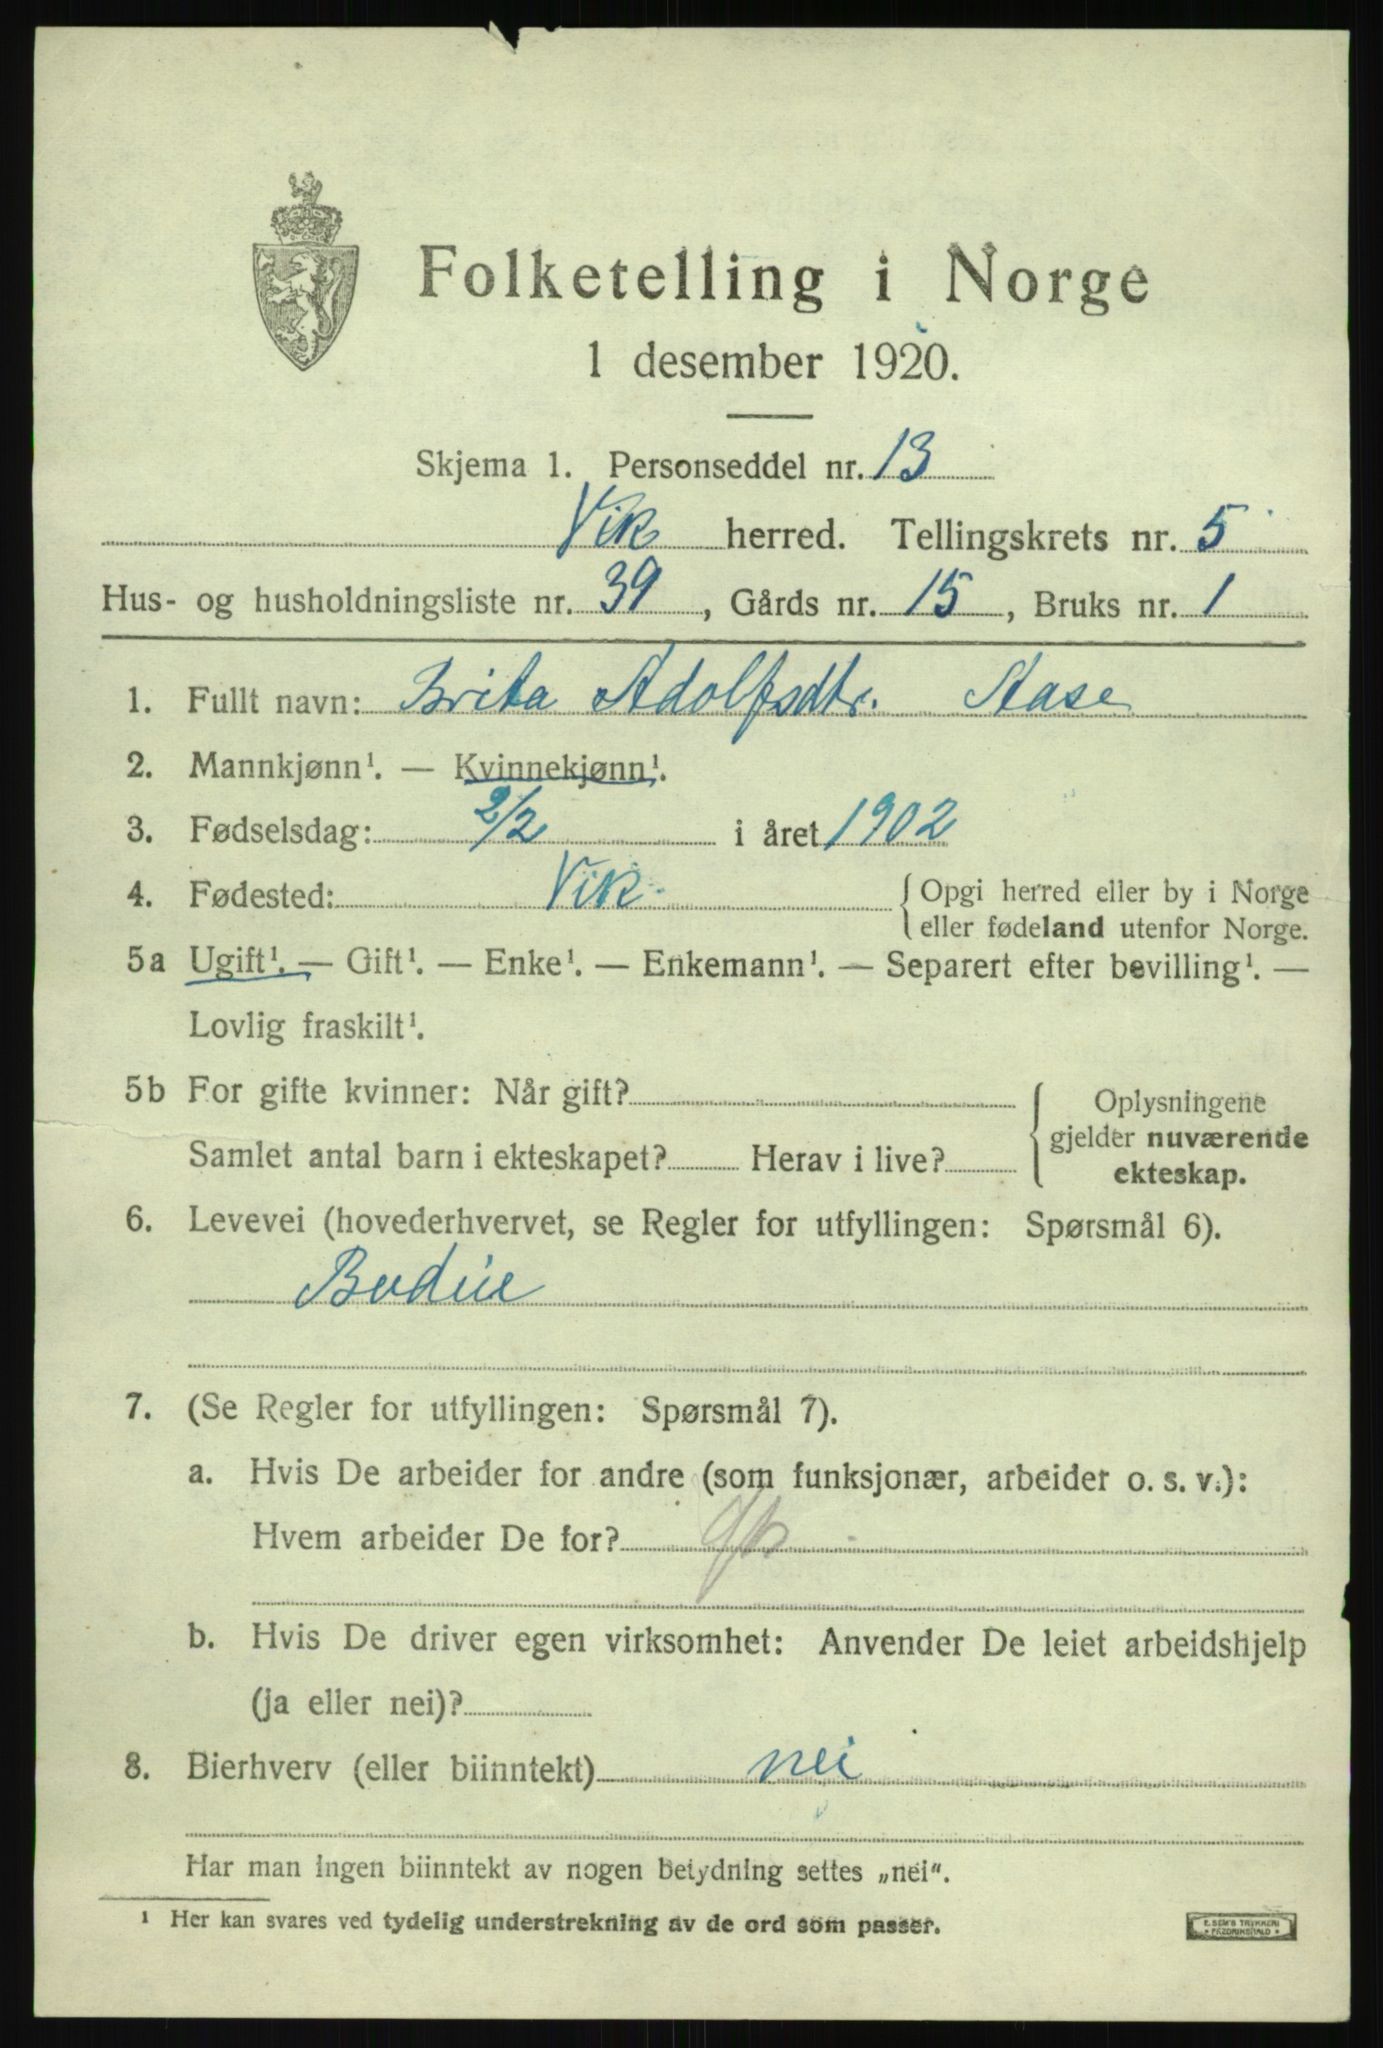 Folketelling i Norge
1 desember 1920.
Skjema 1. Personseddel nr. 13
Vik herred. Tellingskrets nr. 5
Hus- og husholdningsliste nr. 39, Gårds nr. 15, Bruks nr. 1
1. Fullt navn: Brita Adolfsdtr. Aase
2. Mannkjønn¹. — Kvinnekjønn¹.
3. Fødselsdag: 2/2 i året 1902
4. Fødested: Vik { Opgi herred eller by i Norge
eller fødeland utenfor Norge.
5a Ugift¹. — Gift¹. — Enke¹. — Enkemann¹. — Separert efter bevilling¹. —
Lovlig fraskilt¹.
5b For gifte kvinner: Når gift?
Samlet antal barn i ekteskapet? Herav i live?
{ Oplysningene
gjelder nuværende
ekteskap.
6. Levevei (hovederhvervet, se Regler for utfyllingen: Spørsmål 6).
Budeie
7. (Se Regler for utfyllingen: Spørsmål 7).
a. Hvis De arbeider for andre (som funksjonær, arbeider o. s. v.):
Hvem arbeider De for?
b. Hvis De driver egen virksomhet: Anvender De leiet arbeidshjelp
(ja eller nei)?
8. Bierhverv (eller biinntekt) nei
Har man ingen biinntekt av nogen betydning settes „nei“.
¹ Her kan svares ved tydelig understrekning av de ord som passer.
E. SEM'S TRYKKERI
FREDRIKSHALD